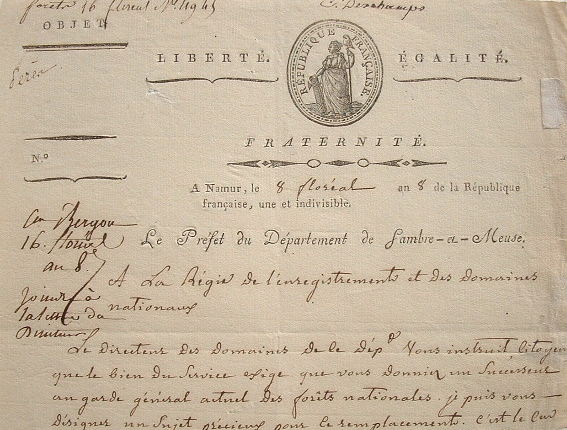 forêts 16 floréal N.º 1945
C. Deschamps
OBJET
LIBERTÉ. ÉGALITÉ.
RÉPUBLIQUE FRANÇAISE.
FRATERNITÉ.
N.º
A Namur, le 8 floréal an 8 de la République
française, une et indivisible.
Le Préfet du Département de Sambre-et-Meuse,
Bergon
16. floréal
an 8.
A La Régie de l'enregistrement et des Domaines
nationaux
à
du
Directeur
Le Directeur des Domaines de le Dép. Vous instruit, Citoyen
que le bien du Service exige que vous donniez un Successeur
au garde général actuel des forêts nationales. je puis vous
désigner un Sujet précieux pour ce remplacement. C'est le